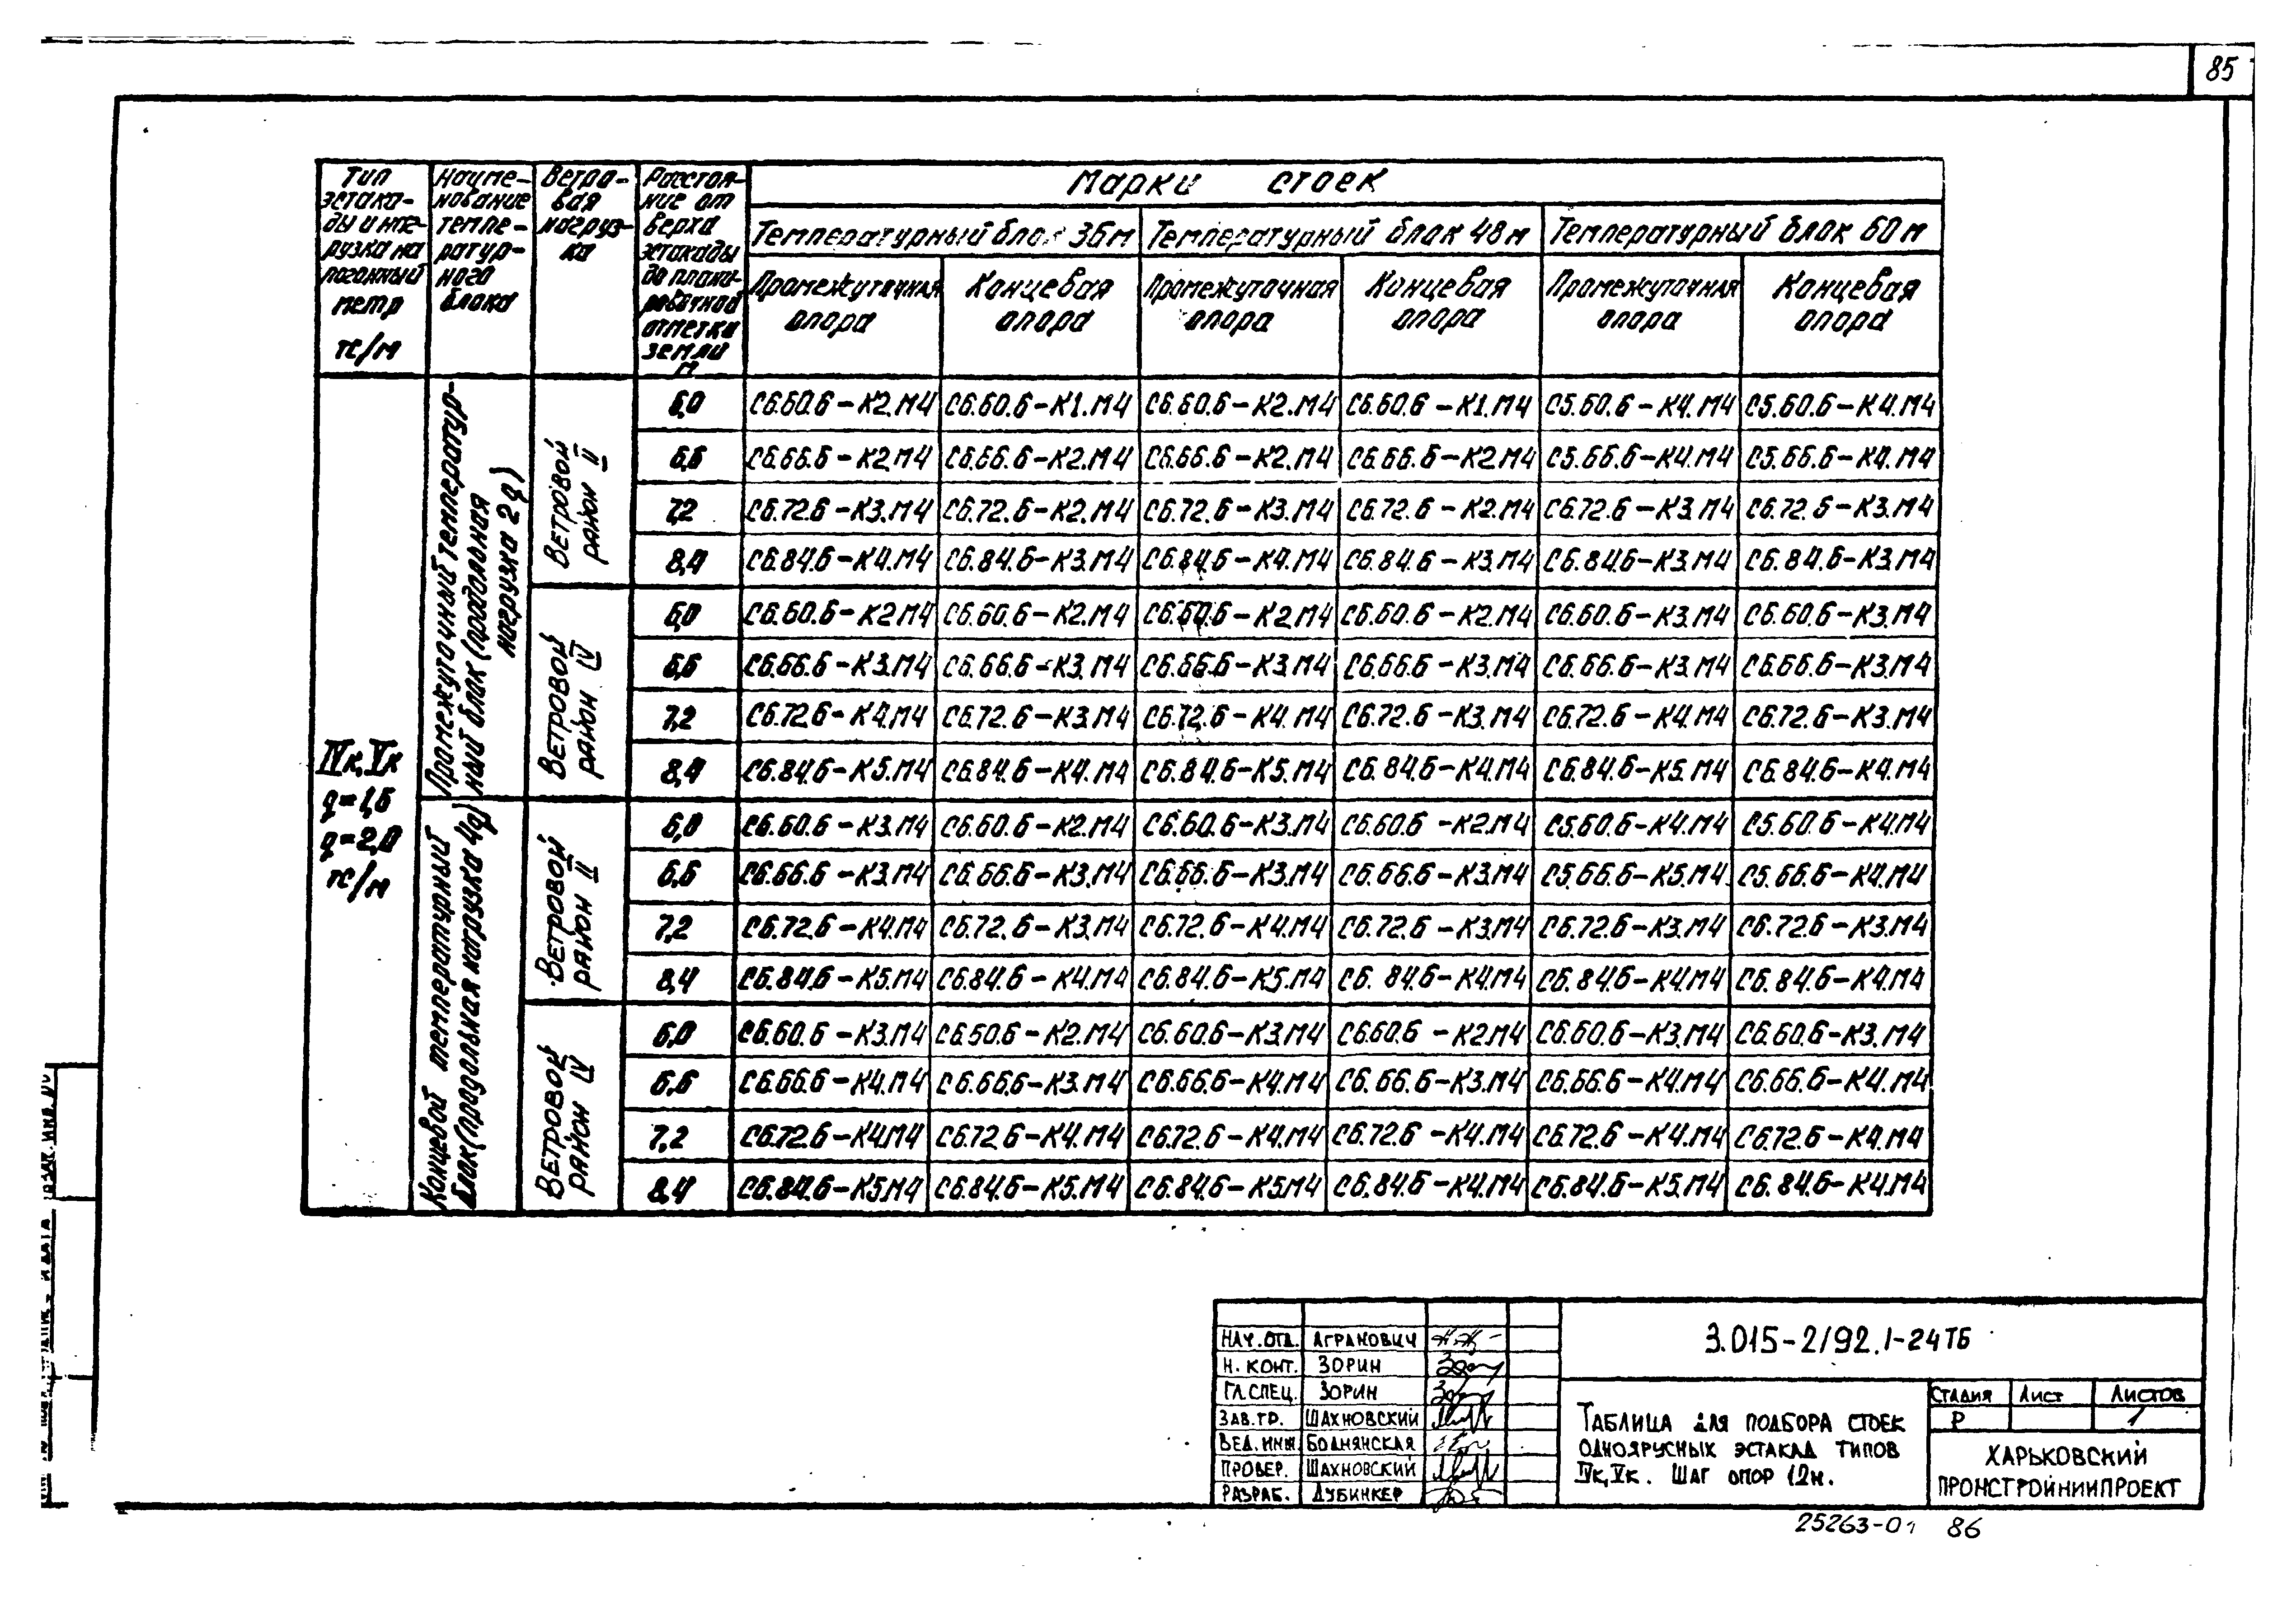 85
Тип эстакады и нагрузка на погонный метр тс/м
Наименование температурного блока
Ветровая нагрузка
Расстояние от верха эстакады до планировочной отметки земли м
Марки стоек
Температурный блок 36м
Температурный блок 48м
Температурный блок 60м
Промежуточная опора
Концевая опора
Промежуточная опора
Концевая опора
Промежуточная опора
Концевая опора
IVк, Vк
q=1,5
q=2,0
тс/м
Промежуточный температурный блок (продольная нагрузка 2q)
Ветровой район II
6,0 С6.60.6-К2.М4 С6.60.6-К1.М4 С6.60.6-К2.М4 С6.60.6-К1.М4 С5.60.6-К4.М4 С5.60.6-К4.М4
6,6 С6.66.6-К2.М4 С6.66.6-К2.М4 С6.66.6-К2.М4 С6.66.6-К2.М4 С5.66.6-К4.М4 С5.66.6-К4.М4
7,2 С6.72.6-К3.М4 С6.72.6-К2.М4 С6.72.6-К3.М4 С6.72.6-К2.М4 С6.72.6-К3.М4 С6.72.6-К3.М4
8,4 С6.84.6-К4.М4 С6.84.6-К3.М4 С6.84.6-К4.М4 С6.84.6-К3.М4 С6.84.6-К3.М4 С6.84.6-К3.М4
Ветровой район IV
6,0 С6.60.6-К2.М4 С6.60.6-К2.М4 С6.60.6-К2.М4 С6.60.6-К2.М4 С6.60.6-К3.М4 С6.60.6-К3.М4
6,6 С6.66.6-К3.М4 С6.66.6-К3.М4 С6.66.6-К3.М4 С6.66.6-К3.М4 С6.66.6-К3.М4 С6.66.6-К3.М4
7,2 С6.72.6-К4.М4 С6.72.6-К3.М4 С6.72.6-К4.М4 С6.72.6-К3.М4 С6.72.6-К4.М4 С6.72.6-К3.М4
8,4 С6.84.6-К5.М4 С6.84.6-К4.М4 С6.84.6-К5.М4 С6.84.6-К4.М4 С6.84.6-К5.М4 С6.84.6-К4.М4
Концевой температурный блок (продольная нагрузка 4q)
Ветровой район II
6,0 С6.60.6-К3.М4 С6.60.6-К2.М4 С6.60.6-К3.М4 С6.60.6-К2.М4 С5.60.6-К4.М4 С5.60.6-К4.М4
6,6 С6.66.6-К3.М4 С6.66.6-К3.М4 С6.66.6-К3.М4 С6.66.6-К3.М4 С5.66.6-К5.М4 С5.66.6-К4.М4
7,2 С6.72.6-К4.М4 С6.72.6-К3.М4 С6.72.6-К4.М4 С6.72.6-К3.М4 С6.72.6-К3.М4 С6.72.6-К3.М4
8,4 С6.84.6-К5.М4 С6.84.6-К4.М4 С6.84.6-К5.М4 С6.84.6-К4.М4 С6.84.6-К4.М4 С6.84.6-К4.М4
Ветровой район IV
6,0 С6.60.6-К3.М4 С6.50.6-К2.М4 С6.60.6-К3.М4 С6.60.6-К2.М4 С6.60.6-К3.М4 С6.60.6-К3.М4
6,6 С6.66.6-К4.М4 С6.66.6-К3.М4 С6.66.6-К4.М4 С6.66.6-К3.М4 С6.66.6-К4.М4 С6.66.6-К4.М4
7,2 С6.72.6-К4.М4 С6.72.6-К4.М4 С6.72.6-К4.М4 С6.72.6-К4.М4 С6.72.6-К4.М4 С6.72.6-К4.М4
8,4 С6.84.6-К5.М4 С6.84.6-К5.М4 С6.84.6-К5.М4 С6.84.6-К4.М4 С6.84.6-К5.М4 С6.84.6-К4.М4
НАЧ.ОТД. АГРАНОВИЧ
Н. КОНТ. ЗОРИН
ГЛ.СПЕЦ. ЗОРИН
ЗАВ.ГР. ШАХНОВСКИЙ
ВЕД.ИНЖ БОДНЯНСКАЯ
ПРОВЕР. ШАХНОВСКИЙ
РАЗРАБ. ДУБИНКЕР
3.015-2/92.1-24ТБ
ТАБЛИЦА ДЛЯ ПОДБОРА СТОЕК
ОДНОЯРУСНЫХ ЭСТАКАД ТИПОВ
IVк, Vк. ШАГ ОПОР 12м.
СТАДИЯ ЛИСТ ЛИСТОВ
Р 1
ХАРЬКОВСКИЙ
ПРОМСТРОЙНИИПРОЕКТ
25263-01 86